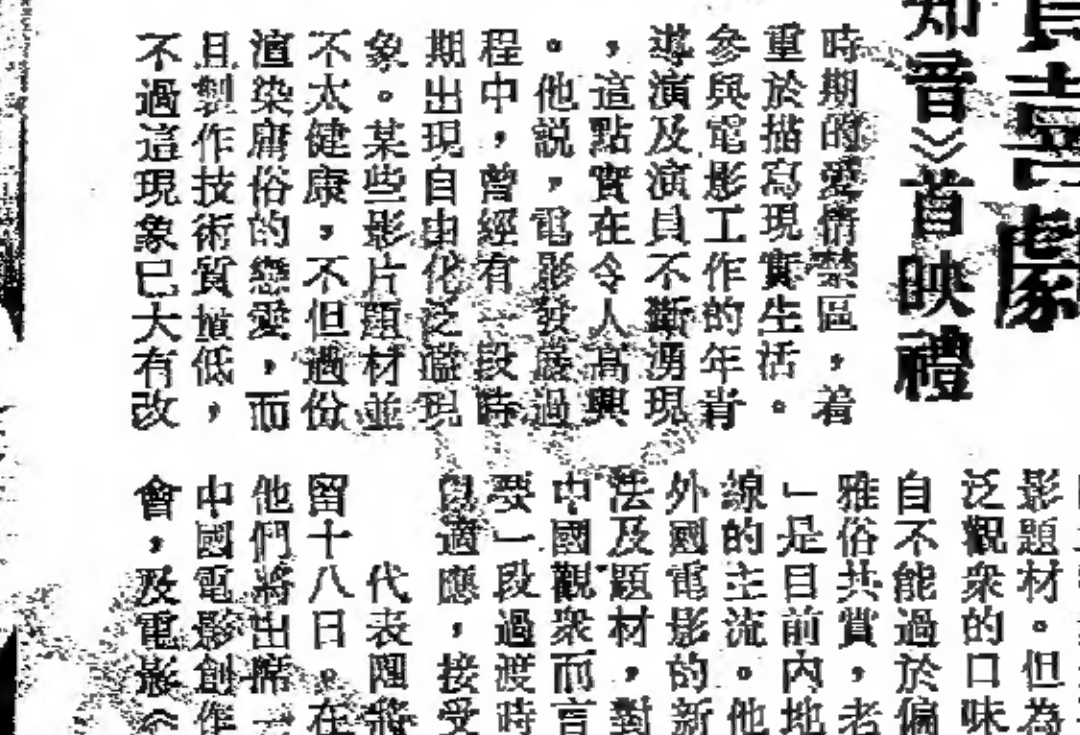 喜劇
知音》首映禮
時期的愛情禁區，着
重於描寫現實生活。
參與電影工作的年青
導演及演員不斷湧現
，這點實在令人高興
。他説，電影發展過
程中，曾經有一段時
期出現自由化泛濫現
象。某些影片題材並
不太健康，不但過份
渲染庸俗的戀愛，而
且製作技術質量低，
不過這現象已大有改
影題材。但為
泛觀衆的口味
自不能過於偏
雅俗共賞，老
」是目前內地
線的主流。他
外國電影的新
法及題材，對
中國觀衆而言
要一段過渡時
以適應，接受
代表團將
留十八日。在
他們將出席
中國電影創作
會，及電影《